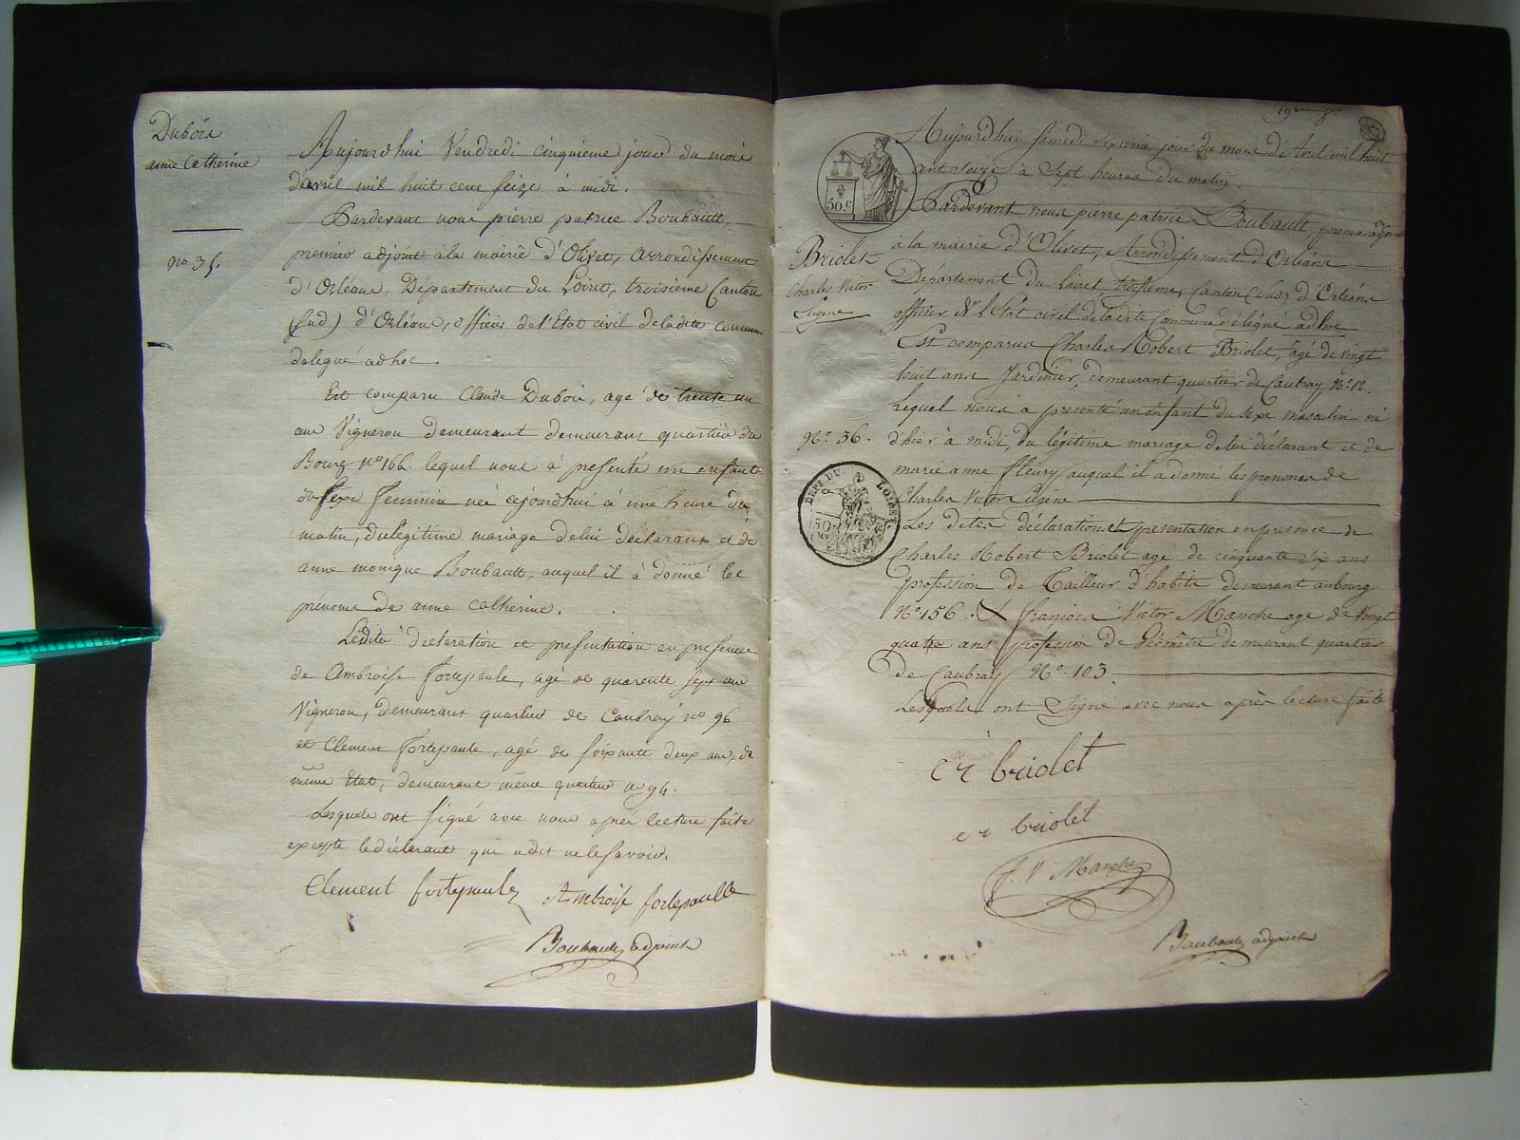 Dubois
anne Catherine
no. 35.
Aujourdhui Vendredi cinquieme jour du mois
d'avril mil huit cent seize à midi.
Pardevant nous pierre patrice Boubault,
premier adjoint à la mairie d'Olivet, arrondissement
d'Orléans, Département du Loiret, troisième Canton
(sud) d'Orléans, officier de l'Etat civil de ladite commune
delegué ad hoc.
Est comparu Claude Dubois, agé de trente un
ans Vigneron demeurant demeurant quartier du
Bourg no 166 lequel nous à presenté un enfant
du sexe feminin né cejourdhui à une heure du
matin, du legitime mariage de lui déclarant et de
anne monique Boubault, auquel il à donné les
prénoms de anne catherine.
Ledite declaration et presentation en presence
de Ambroise fortepaule, agé de quarente sept ans
Vigneron, demeurant quartier de Caubray no 96
et Clement fortepaule, agé de soixante deux ans, de
même Etat, demeurant même quartier no 94.
Lesquels ont signé avec nous après lecture faite
excepte le déclarant qui a dit ne le savoir.
Clement fortepaule Ambroise fortepaulle
Boubault adjoint
50 c
Aujourdhui Samedi sixieme jour du mois d'Avril mil huit
cent seize à Sept heures du matin.
Pardevant nous pierre patrice Boubault, premier adjoint
à la mairie d'Olivet, Arrondissement d'Orléans
Département du Loiret troisieme Canton (sud) d'Orléans
officier de l'Etat civil de ladite Commune délégué ad hoc
Briolet
Charles Victor
N°. 36.
DEPT DU LOIRET
Est comparu Charles Robert Briolet, agé de vingt
huit ans Jardinier, demeurant quartier de Caubray N° 12.
Lequel nous a presenté un enfant du sexe masculin né
d'hier à midi, du légitime mariage de lui déclarant et de
marie anne fleury auquel il a donné les prenoms de
Charles Victor
Les dites déclaration et presentation en presence de
Charles Robert Briolet age de cinquante six ans
profession de Tailleur d'habits demeurant au bourg
N° 156. Et françois Victor Manche age de vingt
quatre ans profession de Géomètre demeurant quartier
de Caubray N° 103.
Lesquels ont Signé avec nous après lecture faite
c r briolet
c r briolet
f. V Manche
Boubault adjoint